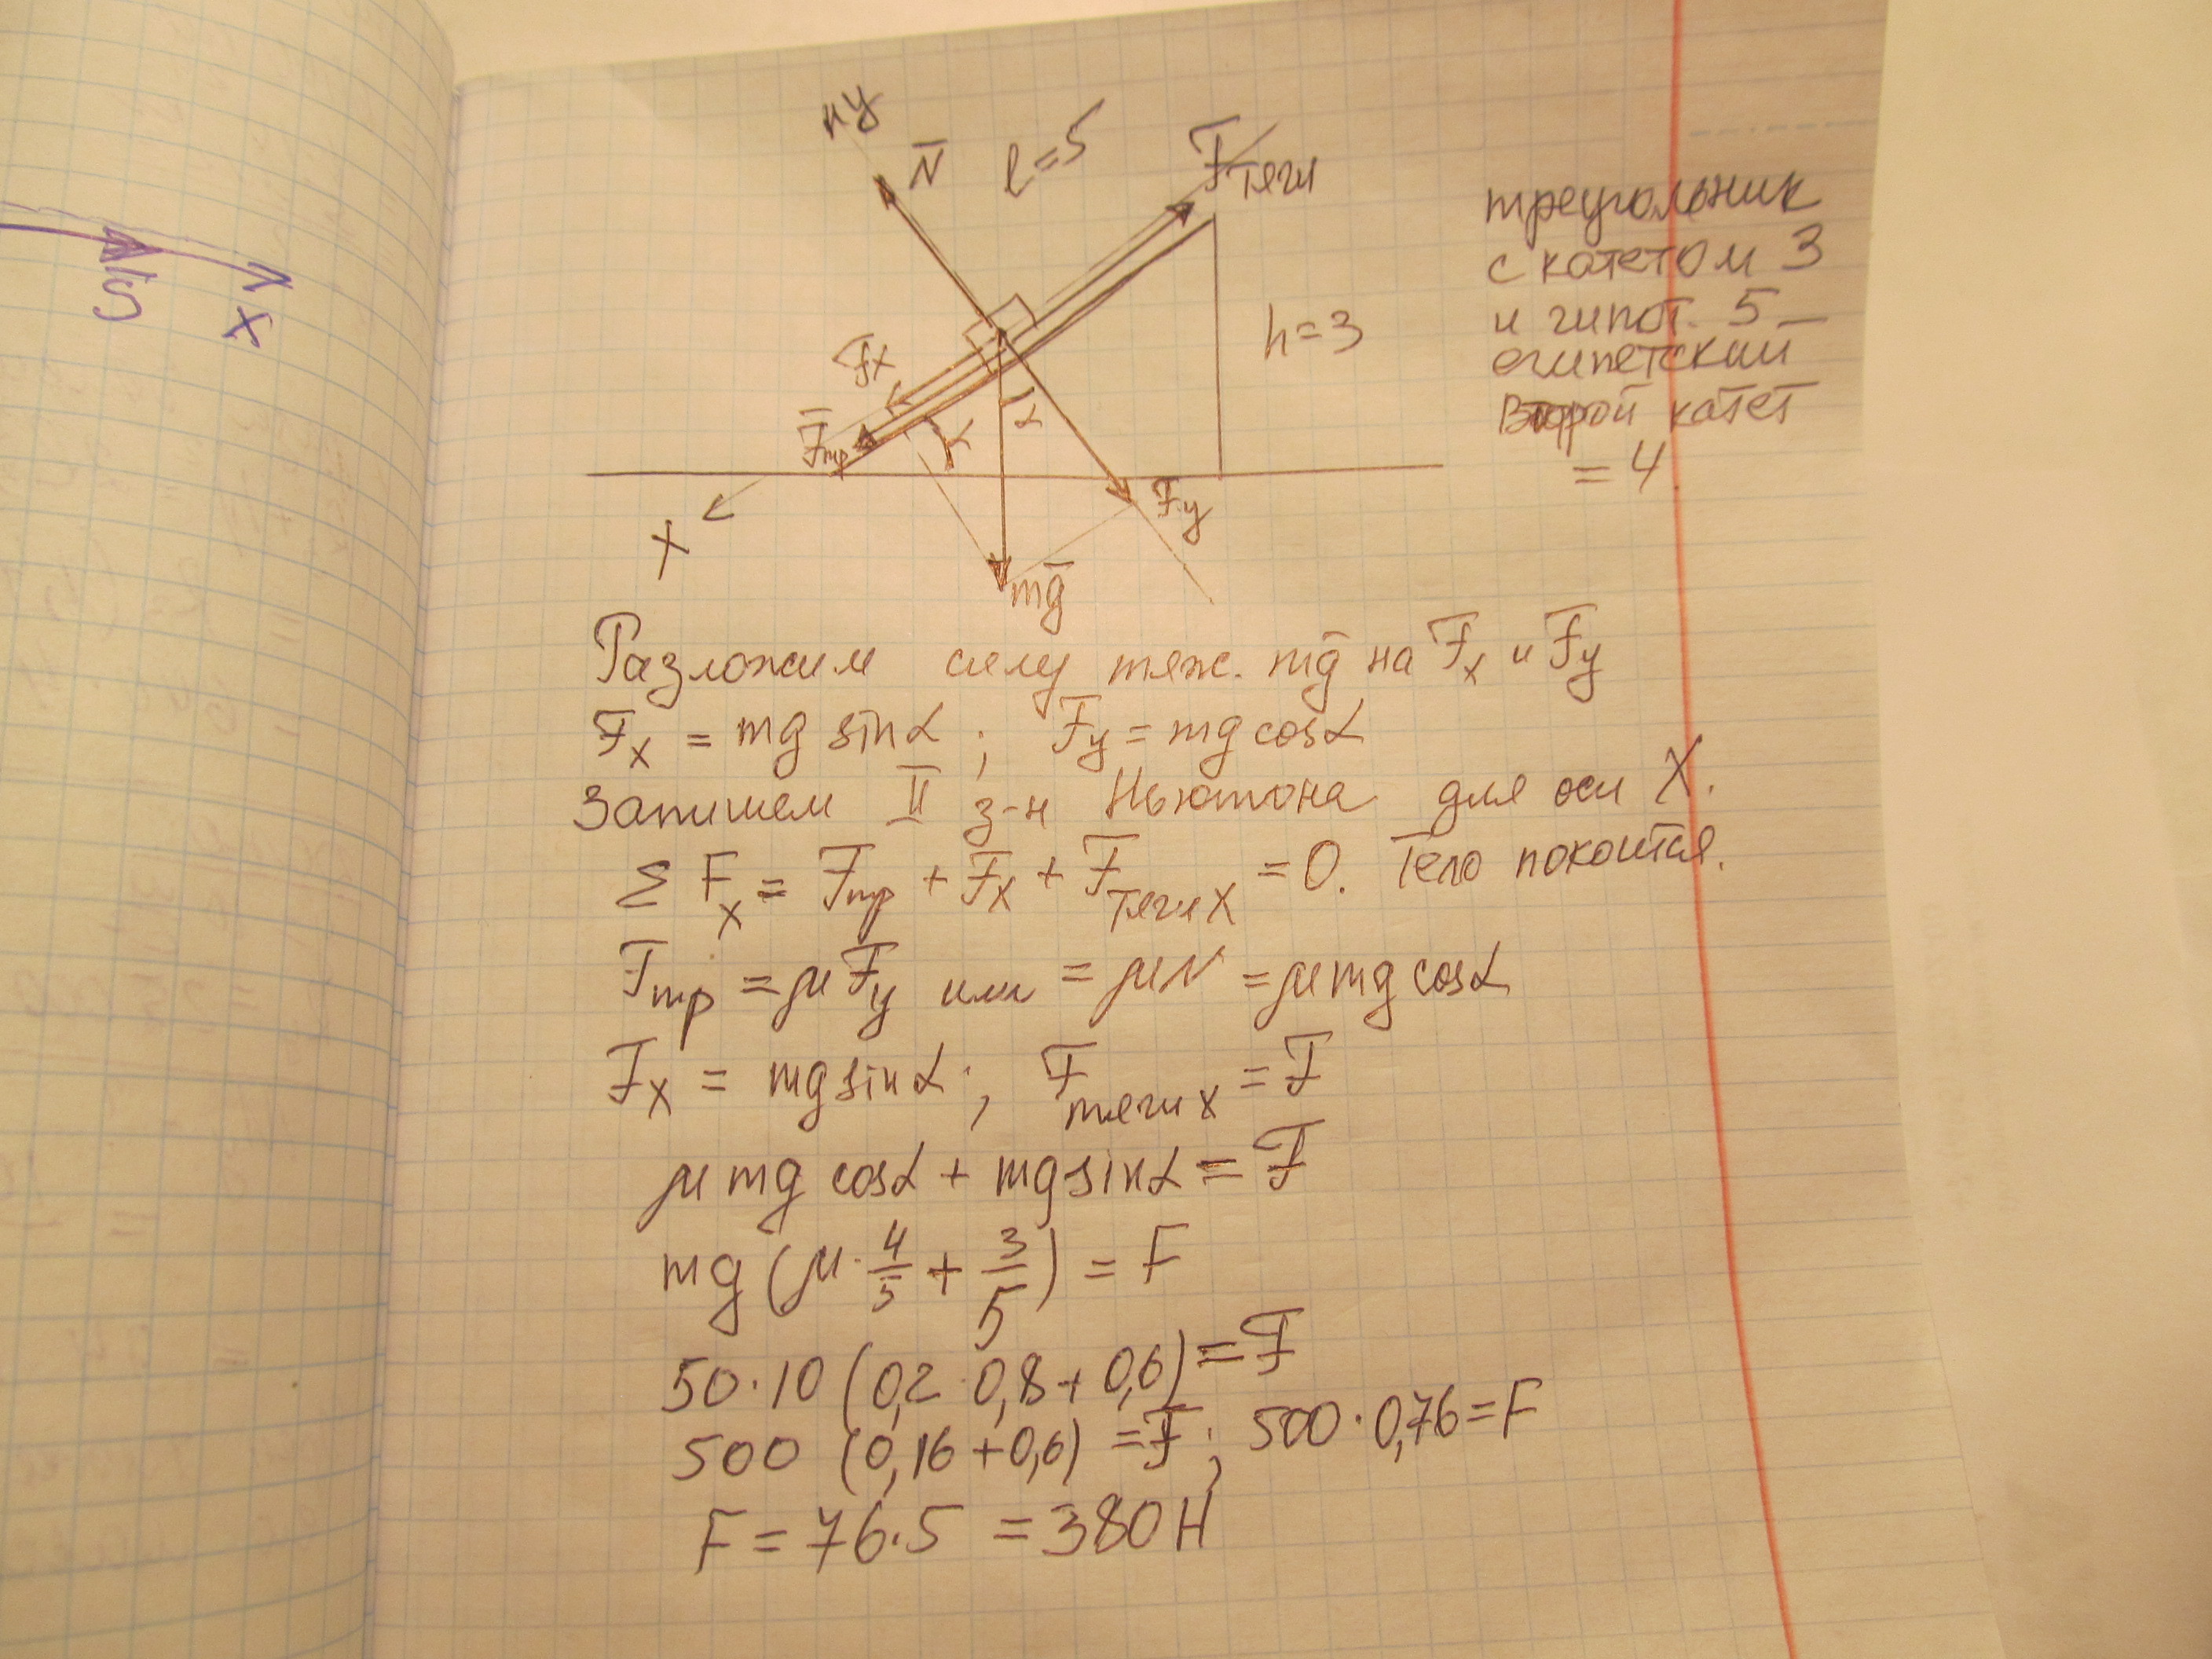 иу
N̄
l=5
F̄тяги
треугольник
с катетом 3
и гипот. 5 –
египетский
Второй катет
= 4
h=3
F̄x
F̄тр
α
α
F̄y
X
mḡ
x
Разложим силу тяж. mḡ на F̄x и F̄y
Fx = mg sinα ; Fy = mg cosα
Запишем II з-н Ньютона для оси X.
Σ Fx = Fтр + Fx + Fтяги X = 0. Тело покоится.
Fтр = μFy или = μN = μmg cosα
Fx = mg sinα ; Fтяги x = F
μ mg cosα + mg sinα = F
mg (μ · 4/5 + 3/5) = F
50·10 (0,2·0,8+0,6) = F
500 (0,16+0,6) = F ; 500·0,76=F
F = 76·5 = 380 Н